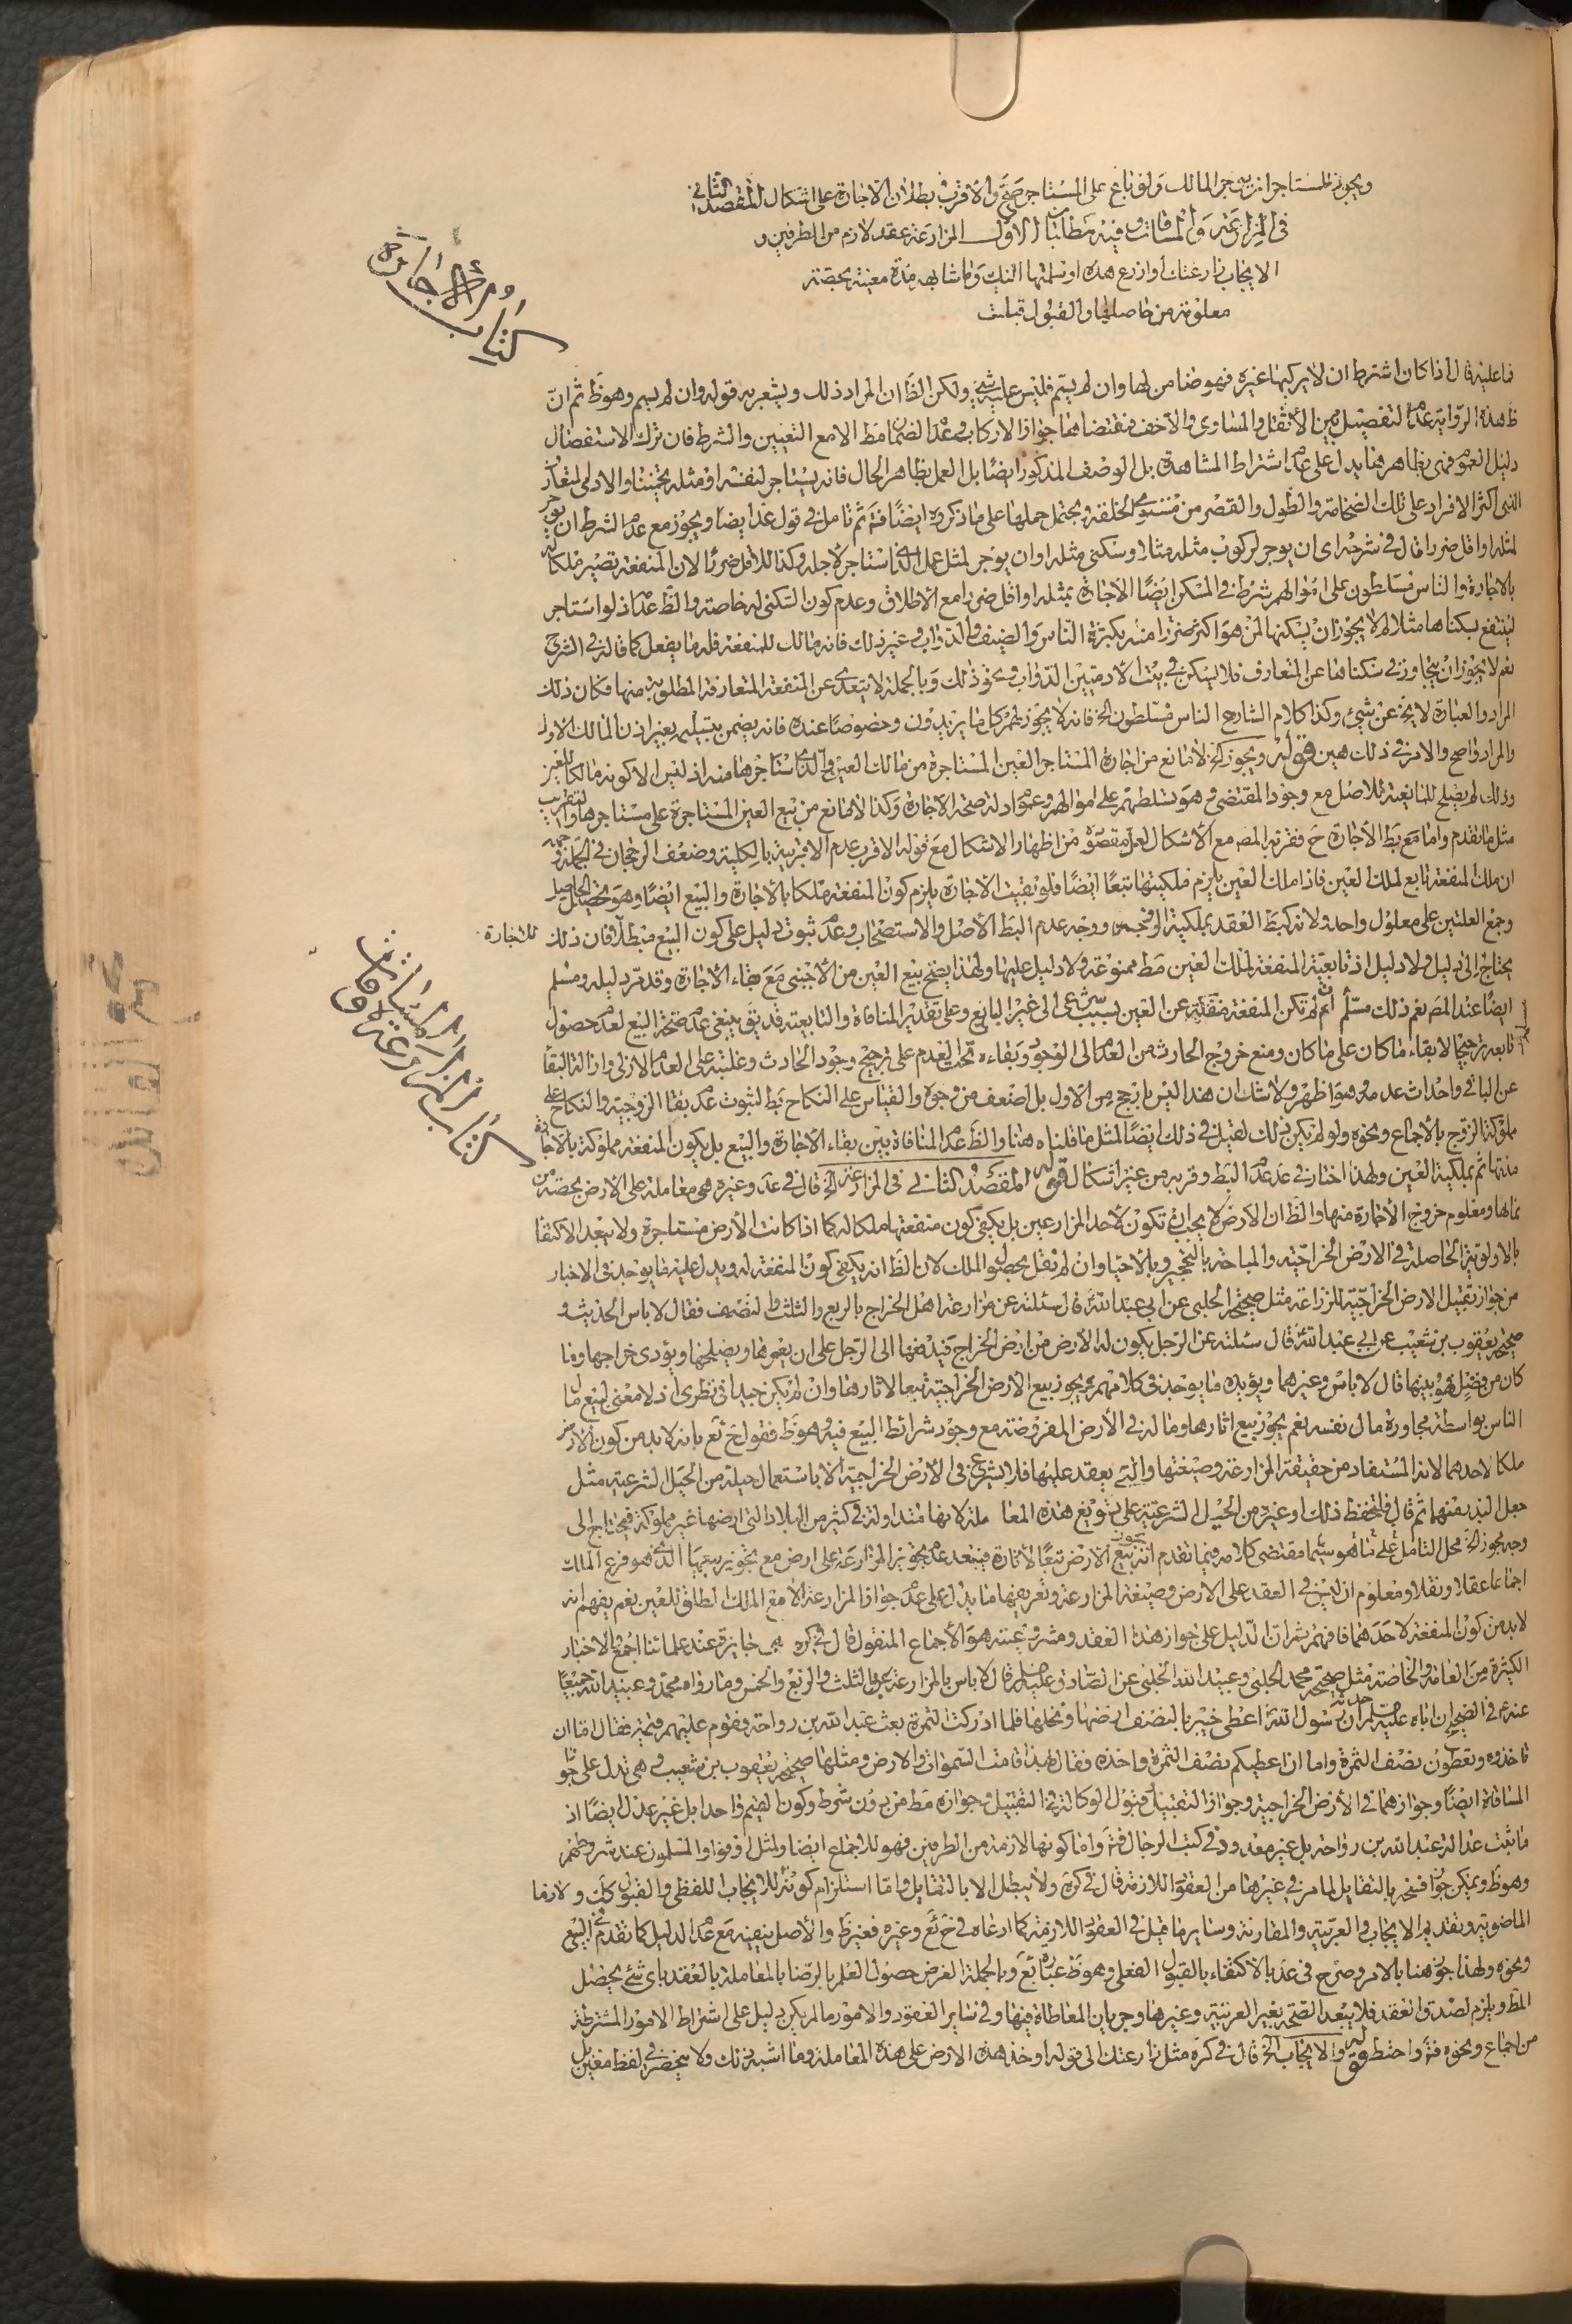 ويجوز للمستاجر ان يوجر المالك ولو باع على المستاجر صح والاقرب بطلان الاجارة على اشكال المقصد الثاني
في المزارعة والمساقات وفيه مطلبان الاول المزارعة عقد لازم من الطرفين و
الايجاب زارعتك او ازرع هذه او سلمتها اليك وما شابهه مدة معينة بحصة
معلومة من حاصلها والقبول قبلت
كتاب الاجارة
فما عليه قال اذا كان اشترط ان لا يركبها غيره فهو ضامن لها وان لم يسم فليس عليه شئ ولكن الظ ان المراد ذلك ويشعر به قوله وان لم يسم وهو ظ ثم ان
ظ هذه الرواية عدم التفصيل بين الاثقل والمساوى والاخف فمقتضاها جواز الاركاب وعدم الضمان مط الا مع التعيين والشرط فان ترك الاستفصال
دليل العموم فهى بظاهرها يدل على عدم اشتراط المشاهدة بل الوصف المذكور ايضا بل العمل بظاهر الحال فانه يستاجر لنفسه او مثله
اكثر الافراد على تلك الضخامة والطول والقصر من مستوى الخلقة ويحتمل حملها على ما ذكروه ايضا فت ثم تامل في قول عد ايضا ويجوز مع عدم الشرط ان يوجر
لمثله او اقل ضررا قال في شرحه اى ان يوجر لركوب مثله مثلا او سكنى مثله او ان يوجر لمثل عمل الذى استاجر لاجله وكذا للاقل ضررا لان المنفعة تصير ملكا له
بالاجارة والناس مسلطون على اموالهم شرط في المسكن ايضا الاجارة بمثله او اقل ضررا مع الاطلاق وعدم كون السكنى له خاصة والظ عدمه اذ لو استاجر
لينتفع بسكناها مثلا لم لا يجوز ان يسكنها لمن هو اكثر ضررا منه بكثرة الناس والضيف والدواب وغير ذلك فانه مالك للمنفعة فله ما يفعل كما قاله في الشرح
نعم لا يجوز ان يتجاوز في سكناها عن المتعارف فلا يسكن في بيت الادميين الدواب ونحو ذلك وبالجملة لا يتعدى عن المنفعة المتعارفة المطلوبة منها فكان ذلك
المراد والعبارة لا يخ عن شئ وكذا كلام الشارح الناس مسلطون الخ فانه لا يجوز لهم كلما يريدون وخصوصا عنده فانه يضمن بتسليم بغير اذن المالك الاول
والمراد واضح والامر في ذلك هين قوله ويجوز الخ لا مانع من اجارة المستاجر العين المستاجرة من مالك العين والذى استاجرها منه اذ ليس الا كونه مالكا للعين
وذلك لم يصلح للمانعية للاصل مع وجود المقتضى وهو تسلطهم على اموالهم وعموم ادلة صحة الاجارة وكذا لا مانع من بيع العين المستاجرة على مستاجرها والتقريب
مثل ما تقدم واما مع بط الاجارة ح فقربه المص مع الاشكال لعل مقصوده من اظهار الاشكال مع قوله الاقرب عدم الاقربية بالكلية وضعف الرجحان في الجملة وجهه
ان ملك المنفعة تابع لملك العين فاذا ملك العين يلزم ملكيتها تبعا ايضا فلو بقيت الاجارة يلزم كون المنفعة ملكا بالاجارة والبيع ايضا وهو تحصيل الحاصل
وجمع العلتين على معلول واحد ولانه كبط العقد بملكية الزوجة ووجه عدم البط الاصل والاستصحاب وعدم ثبوت دليل على كون البيع مبطلا فان ذلك للاجارة
يحتاج الى دليل ولا دليل اذ تابعية المنفعة لملك العين مط ممنوعة ولا دليل عليها ولهذا يصح بيع العين من الاجنبى مع بقاء الاجارة وقد مر دليله ومسلم
ايضا عند المص نعم ذلك مسلم ان لم تكن المنفعة منتقلة عن العين بسبب شرعى الى غير البايع وعلى تقدير المنافاة والتابعية قد يق ينبغى عدم صحة البيع لعدم حصول
تابعه ترجيحا لابقاء ما كان على ما كان ومنع خروج الحادث من العدم الى الوجود وبقاءه تحت العدم على ترجيح وجود الحادث وغلبته على العدم الازلى وازالة البقاء
عن الباقي واحداث عدمه وهو اظهر ولا شك ان هذا ليس بارجح من الاول بل اضعف من وجوه والقياس على النكاح بط لثبوت عدم بقاء الزوجية والنكاح على
مملوكة الزوج بالاجماع ونحوه ولو لم يكن ذلك لقيل في ذلك ايضا المثل ما قلناه هنا والظ عدم المنافاة بين بقاء الاجارة والبيع بل يكون المنفعة مملوكة بالاجارة
مدتها ثم بملكية العين ولهذا اختار في عد عدم البط وقربه من غير اشكال قوله المقصد الثانى في المزارعة الخ قال في عد وغيره هى معاملة على الارض بحصة من
نمائها ومعلوم خروج الاجارة منها والظ ان الارض لا يجب ان تكون لاحد المزارعين بل يكفى كون منفعتها ملكا له كما اذا كانت الارض مستاجرة ولا يبعد الاكتفاء
بالاولوية الحاصلة في الارض الخراجية والمباحة بالتحجير وبالاحياء وان لم نقل بحصول الملك لان الظ انه يكفى كون المنفعة له ويدل عليه ما يوجد في الاخبار
من جواز تقبيل الارض الخراجية للزراعة مثل صحيحة الحلبى عن ابى عبد الله قال سئلته عن مزارعة اهل الخراج بالربع والثلث والنصف فقال لا باس الحديث و
صحيحة يعقوب بن شعيب عن ابى عبد الله قال سئلته عن الرجل يكون له الارض من ارض الخراج فيدفعها الى الرجل على ان يعمرها ويصلحها ويؤدى خراجها وما
كان من فضل فهو بينهما قال لا باس وغيرهما ويؤيده ما يوجد في كلامهم يجوز بيع الارض الخراجية تبعا لاثارها وان لم يكن جيدا في نظرى اذ لا معنى لبيع مال
الناس بواسطة مجاورة مال نفسه نعم يجوز بيع اثارها وماله في الارض المفروضة مع وجود شرائط البيع فيه وهو ظ فقول ح ئع بانه لا بد من كون الارض
ملكا لاحدهما لانه المستفاد من حقيقة المزارعة وصيغتها والتى يعقد عليها فلا يشرع في الارض الخراجية الا باستعمال حيلة من الحيل الشرعية مثل
جعل البذر بينهما ثم قال فلتحفظ ذلك او غيره من الحيل الشرعية على تسويغ هذه المعاملة لانها متداولة في كثير من البلاد التى ارضها غير مملوكة فيحتاج الى
وجه مجوز الخ محل التامل على ما هو سيما مقتضى كلامه فيما تقدم انه يجوز بيع الارض تبعا لاثاره فيبعد عدم تجويز المزارعة على ارض مع تجويز بيعها الذى هو فرع الملك
اجماعا عقلا ونقلا ومعلوم ان ليس في العقد على الارض وصيغة المزارعة وتعريفها ما يدل على عدم جواز المزارعة الا مع الملك المطلق للعين نعم يفهم انه
لا بد من كون المنفعة لاحدهما فافهم ثم ان الدليل على جواز هذا العقد ومشروعيته هو الاجماع المنقول قال في كره هى جايزة عند علمائنا اجمع والاخبار
الكثيرة من العامة والخاصة مثل صحيحة محمد الحلبى وعبيد الله الحلبى عن الصادق عليه السلم قال لا باس بالمزارعة بالثلث والربع والخمس وما رواه محمد وعبيد الله جميعا
عنه في الصحيح ان اباه عليه السلم حدثه ان رسول الله اعطى خيبر بالنصف ارضها ونخلها فلما ادركت الثمرة بعث عبد الله بن رواحة وقوم عليهم قيمة فقال اما ان
تاخذوه وتعطون نصف الثمرة واما ان اعطيكم نصف الثمرة واخذه فقال بهذا قامت السموات والارض ومثلها صحيحة يعقوب بن شعيب وهى تدل على جواز
المساقاة ايضا وجوازهما في الارض الخراجية وجواز التقبيل وقبول الوكالة في التقبيل وجوازه مط من دون شرط وكون المقيم واحدا بل غير عدل ايضا اذ
ما ثبت عدالة عبد الله بن رواحة بل غير معدود في كتب الرجال فت واما كونها لازمة من الطرفين فهو للاجماع ايضا ولمثل اوفوا والمسلمون عند شروطهم
وهو ظ ويمكن جواز فسخه بالتقايل لما مر في غيرها من العقود اللازمة قال في كره ولا يبطل الا بالتقايل واما استلزام كونه للايجاب اللفظى والقبول كك و لازما
الماضوية وتقديم الايجاب والعربية والمقارنة وساير ما قيل في العقود اللازمة كما ادعاه في ح ئع وغيره فغير ظ والاصل ينفيه مع عدم الدليل كما تقدم في البيع
ونحوه ولهذا جوز هنا بالامر وصرح في عد بالاكتفاء بالقبول الفعلى وهو ظ عبارة ئع وبالجملة الغرض حصول العلم بالرضا بالمعاملة بالعقد باى شئ يحصل
المط ويلزم لصدق العقد فلا يبعد الصحة بغير العربية وغيرها وجريان المعاطاة فيها وفي ساير العقود والامور ما لم يكن دليل على اشتراط الامور المشترطة
من اجماع ونحوه فت واحتط قوله والايجاب الخ قال في كره مثل زارعتك الى قوله او خذ هذه الارض على هذه المعاملة وما اشبه ذلك ولا ينحصر في لفظ معين بل
كتاب المزارعة والمساقات